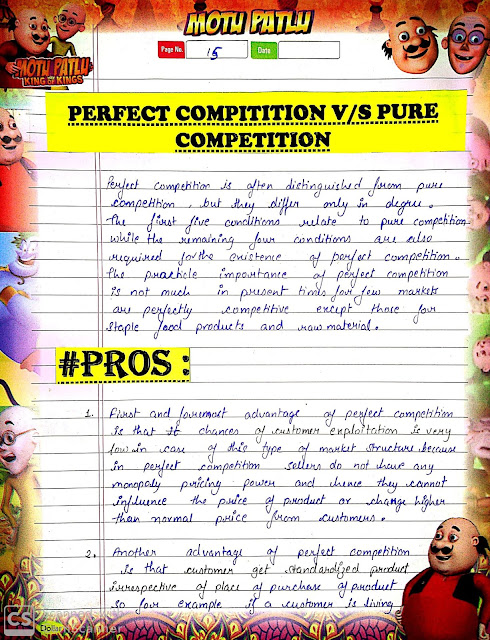 MOTU PATLU
MOTU PATLU
KING OF KINGS
Page No. 15 Date
PERFECT COMPITITION V/S PURE
COMPETITION
Perfect competition is often distinguished form pure
competition, but they differ only in degree.
The first five conditions relate to pure competition
while the remaining four conditions are also
required for the existence of perfect competition.
The practicle importance of perfect competition
is not much in present times for few markets
are perfectly competitive except those for
staple food products and raw material.
#PROS:
1. First and foremost advantage of perfect competition
is that it chances of customer exploitation is very
low in case of this type of market structure because
in perfect competition sellers do not have any
monopoly pricing power and hence they cannot
influence the price of product or change higher
than normal price from customers.
2. Another advantage of perfect competition
is that customer get standardized product
irrespective of place of purchase of product
so for example if a customer is living
CS
Dollar